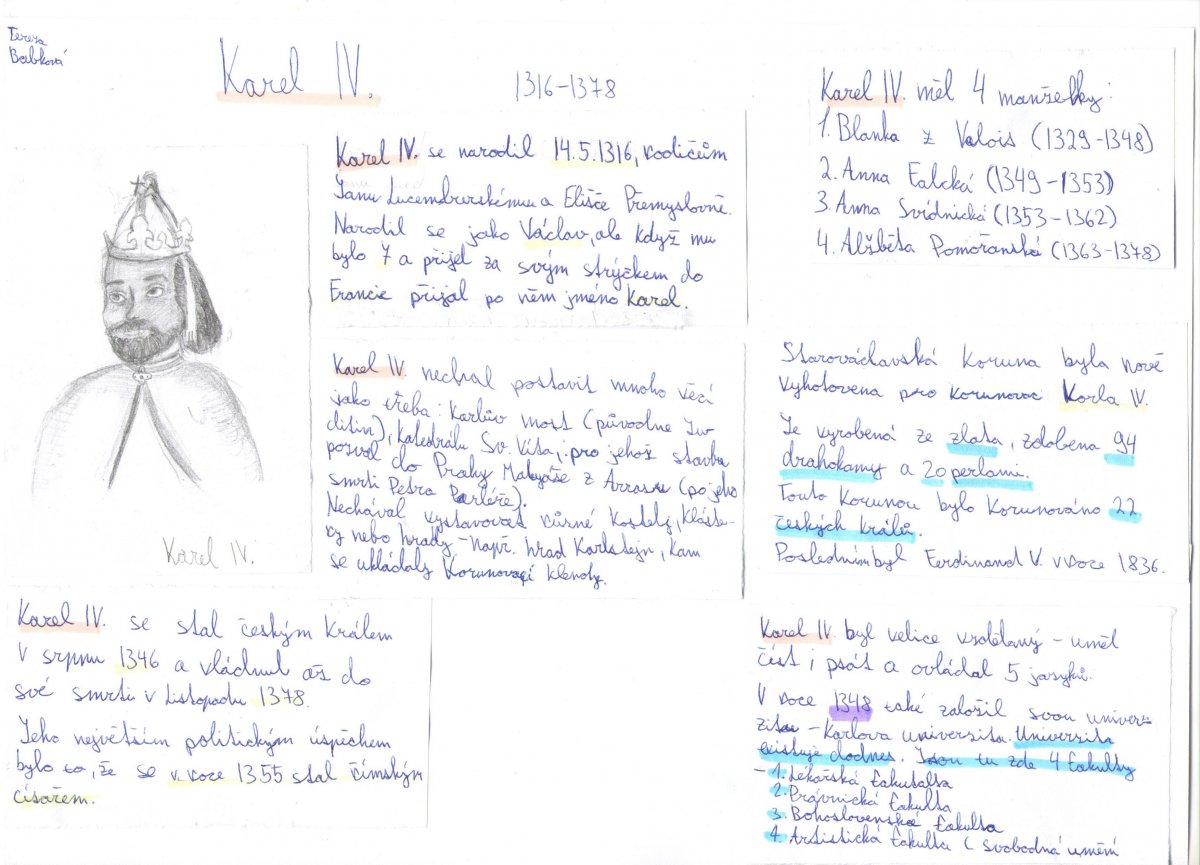 Tereza
Babková
Karel IV.
1316-1378
Karel IV. se narodil 14.5.1316, rodičům
Janu Lucemburskému a Elišce Přemyslovně.
Narodil se jako Václav, ale když mu
bylo 7 a přijel za svým strýčkem do
Francie přijal po něm jméno Karel.
Karel IV. měl 4 manželky:
1. Blanka z Valois (1329-1348)
2. Anna Falcká (1349-1353)
3. Anna Svídnická (1353-1362)
4. Alžběta Pomořanská (1363-1378)
Karel IV.
Karel IV. nechal postavit mnoho věcí
jako třeba: Karlův most (původne Ju
ditin), Katedrálu Sv. Víta, pro jehož stavbu
pozval do Prahy Matyáše z Arrasu (po jeho
smrti Petra Parléře).
Nechával vystavovat různé kostely, klášte-
ry nebo hrady - např. hrad Karlštejn, kam
se ukládaly korunovací klenoty.
Starováclavská koruna byla nově
vyhotovena pro korunovaci Karla IV.
Je vyrobená ze zlata, zdobena 94
drahokamy a 20 perlami.
Touto korunou bylo korunováno 22
českých králů.
Poslední byl Ferdinand V. v roce 1836.
Karel IV. se stal českým králem
v srpnu 1346 a vládnul až do
své smrti v listopadu 1378.
Jeho největším politickým úspěchem
bylo to, že se v roce 1355 stal římským
císařem.
Karel IV. byl velice vzdělaný - uměl
číst i psát a ovládal 5 jazyků.
V roce 1348 také založil svou univer
zitu - Karlova univerzita. Univerzita
existuje dodnes. Jsou tu zde 4 fakulty
- 1. Lékařská fakutalta
2. Právnická fakulta
3. Bohoslovenská fakulta
4. Artistická fakulta ( svobodná umění